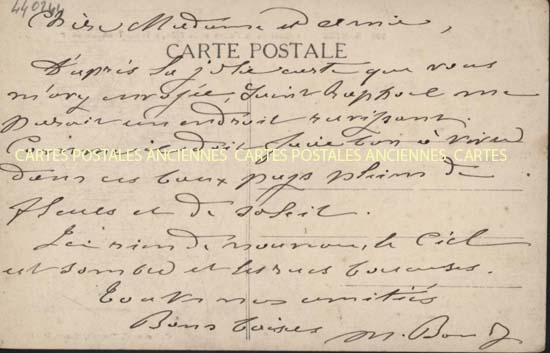 440244
Chère Madame et amie,
CARTE POSTALE
D'après la jolie carte que vous
m'avez envoyée, Saint Raphael me
parait un endroit ravissant.
Comme il doit faire bon à vivre
CARTES POSTALES ANCIENNES CARTES POSTALES ANCIENNES CARTES
dans ces beaux pays pleins de
fleurs et de soleil.
Ici rien de nouveau, le Ciel
est sombre et les rues boueuses.
Toutes nos amitiés
Bons baisers M.